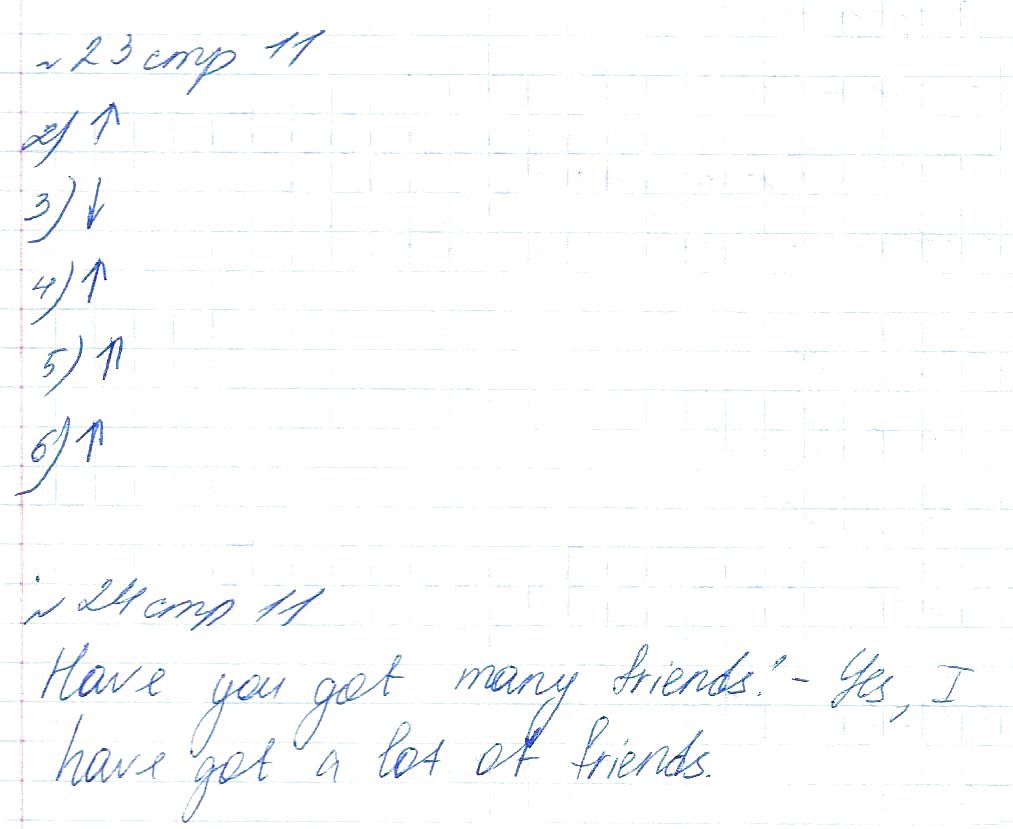 ~ 23 стр 11
2) ↑
3) ↓
4) ↑
5) ↑
6) ↑
~ 24 стр 11
Have you got many friends? - Yes, I
have got a lot of friends.